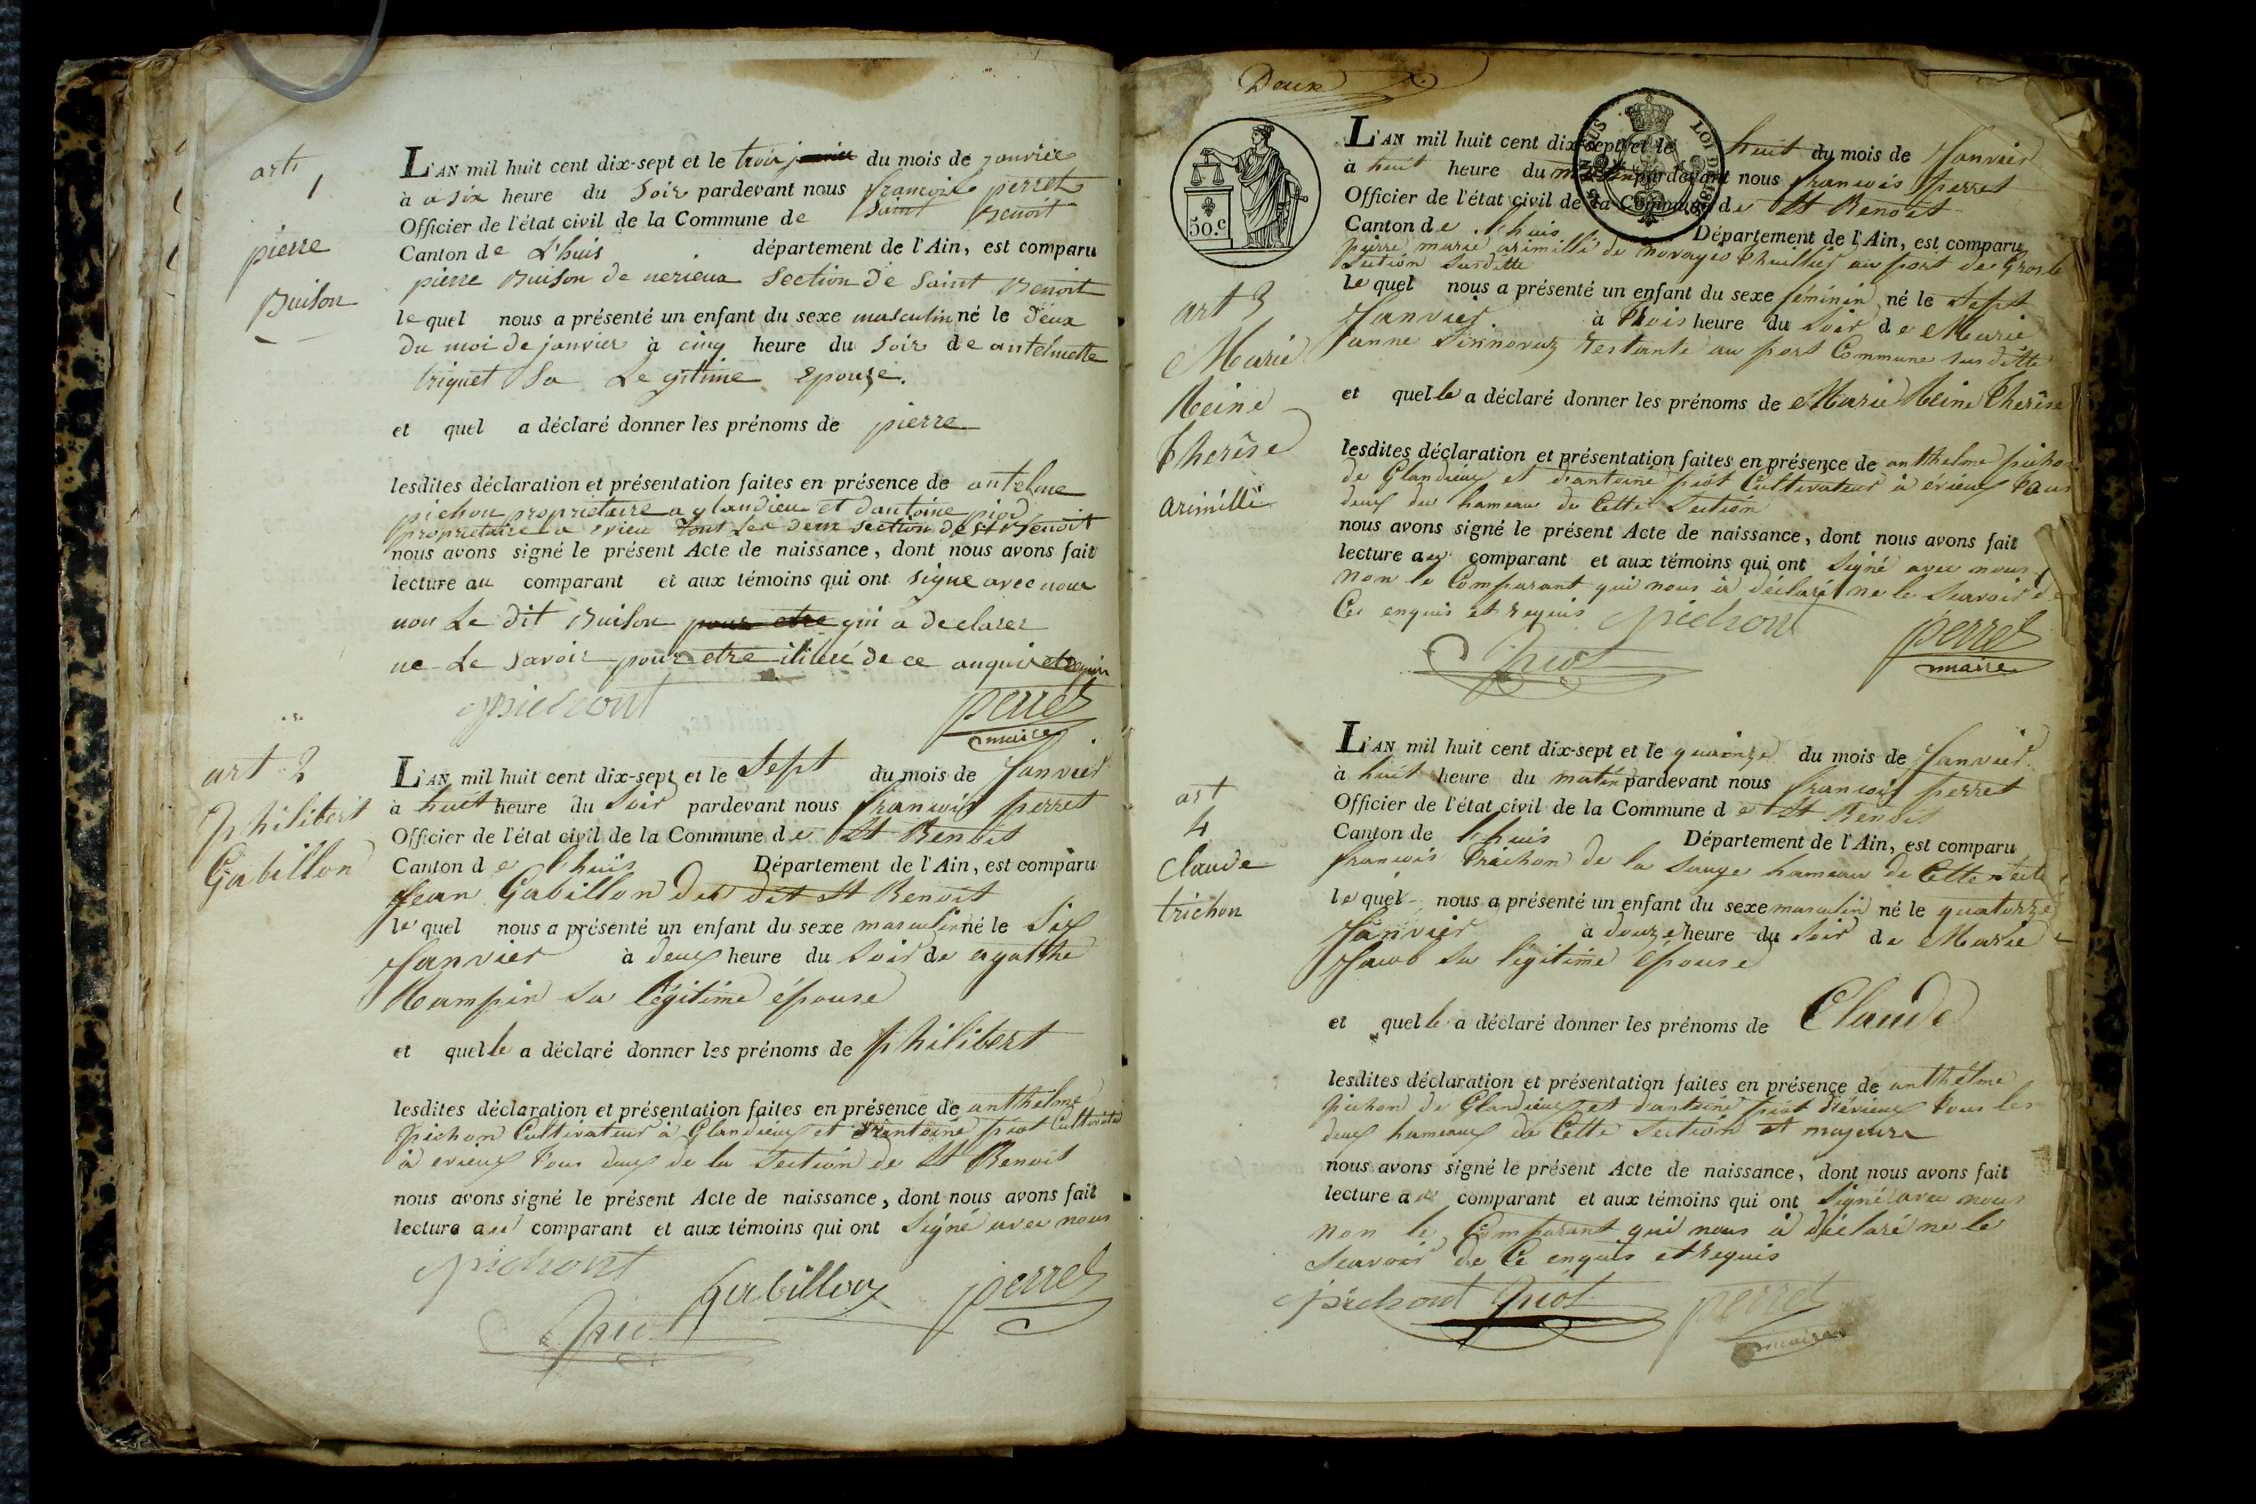 art
1
pierre
Buison
L'AN mil huit cent dix-sept et le trois janvier du mois de janvier
à a six heure du soir pardevant nous françois perret
Officier de l'état civil de la Commune de saint Benoit
Canton de L'huis département de l'Ain, est comparu
pierre Buison de nerieux section de saint Benoit
lequel nous a présenté un enfant du sexe masculin né le deux
du moi de janvier à cinq heure du soir de antelmette
triquet sa Legitime epouse.
et quel a déclaré donner les prénoms de pierre
lesdites déclaration et présentation faites en présence de antelme
pichon propriétaire a glandieu et dantoine piod
propriétaire a evieu tous les deux section de st Benoit
nous avons signé le présent Acte de naissance, dont nous avons fait
lecture au comparant et aux témoins qui ont signe avec nous
non Le dit Buison pour etre qui a declarer
ne Le savoir pour etre iliteré de ce anquis et requis
pichont perret
maire
art 2
Philibert
Gabillon
L'AN mil huit cent dix-sept et le Sept du mois de Janvier
à huit heure du Soir pardevant nous francois perret
Officier de l'état civil de la Commune de St Benoit
Canton de l'huis Département de l'Ain, est comparu
Jean Gabillon du dit St Benoit
lequel nous a présenté un enfant du sexe masculin né le Six
Janvier à deux heure du Soir de agatthe
Rampin Sa légitime épouse
et quelle a déclaré donner les prénoms de philibert
lesdites déclaration et présentation faites en présence de anthelme
pichon Cultivateur à Glandieux et d'antoine piot Cultivateur
à evieux tous deux de la Section de St Benoit
nous avons signé le présent Acte de naissance, dont nous avons fait
lecture au comparant et aux témoins qui ont Signé avec nous
pichont
Gabillon perret
piot
Deux
50.c
LOI DE 1816
art 3
Marie
Reine
Therèse
arimillé
L'AN mil huit cent dix-sept et le huit du mois de Janvier
à huit heure du matin pardevant nous francois perret
Officier de l'état civil de la Commune de St Benoit
Canton de l'huis Département de l'Ain, est comparu
pierre marie arimillé de novayes thuillier au port de Groslé
Section Susditte
lequel nous a présenté un enfant du sexe féminin né le Sept
Janvier à trois heure du Soir de Marie
Janne Sinnovaz restante au port Commune susditte
et quelle a déclaré donner les prénoms de Marie Reine Therèse
lesdites déclaration et présentation faites en présence de anthelme pichon
de Glandieux et d'antoine piot Cultivateur à évieux tous
deux du hameau de Cette Section
nous avons signé le présent Acte de naissance, dont nous avons fait
lecture au comparant et aux témoins qui ont Signé avec nous
non le Comparant qui nous à déclaré ne le Scavoir de
Ce enquis et requis pichont
piot perret
maire
art
4
Claude
trichon
L'AN mil huit cent dix-sept et le quinze du mois de Janvier
à huit heure du matin pardevant nous francois perret
Officier de l'état civil de la Commune de St Benoit
Canton de l'huis Département de l'Ain, est comparu
francois trichon de la Sauge hameau de Cette Section
lequel nous a présenté un enfant du sexe masculin né le quatorze
Janvier à douze heure du Soir de Marie
Jacob Sa légitime épouse
et quelle a déclaré donner les prénoms de Claude
lesdites déclaration et présentation faites en présence de anthelme
pichon de Glandieux et d'antoine piot d'évieux tous les
deux hameaux de Cette Section et majeurs
nous avons signé le présent Acte de naissance, dont nous avons fait
lecture au comparant et aux témoins qui ont Signé avec nous
non le Comparant qui nous à déclaré ne le
Scavoir de Ce enquis et requis
pichont piot perret
maire